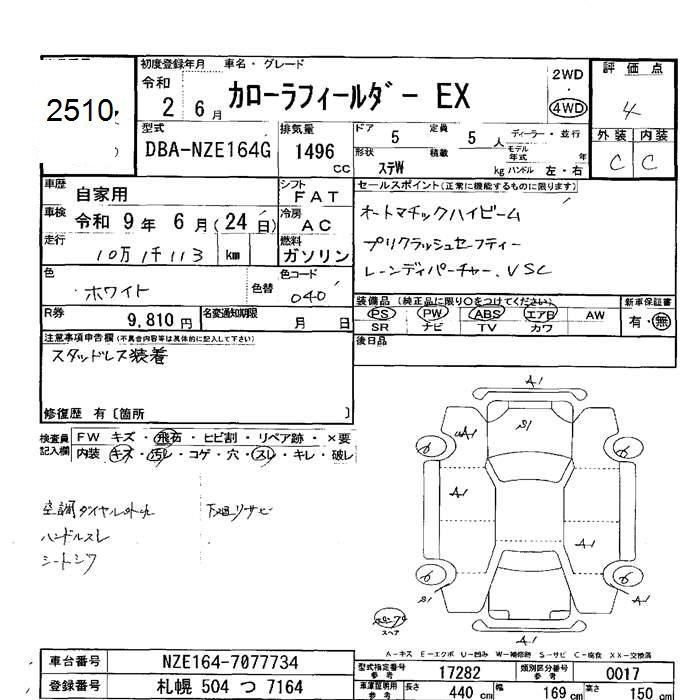 2510
初度登録年月 車名・グレード
令和 2 6月 カローラフィールダー EX
2WD ・ 4WD
評価点
4
外装 内装
C C
型式 DBA-NZE164G
排気量 1496 cc
ドア 5 定員 5人 ディーラー・並行
形状 ステW 積載 kg モデル年式 年
ハンドル 左・右
車歴 自家用
シフト FAT
車検 令和 9年 6月(24日)
冷房 AC
走行 10万1千113 km
燃料 ガソリン
色 ホワイト 色替
色コード 040
R券 9,810円 名変通知期限 月 日
セールスポイント(正常に機能するものに限ります)
オートマチックハイビーム
プリクラッシュセーフティー
レーンディパーチャー、VSC
装備品(純正品に限り○をつけてください) 新車保証書
PS PW ABS エアB AW 有・無
SR ナビ TV カワ
後日品
注意事項申告欄(不具合内容等は具体的に記入して下さい)
スタッドレス装着
修復歴 有〔箇所 〕
検査員記入欄
FW キズ・飛石・ヒビ割・リペア跡・×要
内装 キズ・汚レ・コゲ・穴・スレ・キレ・破レ
下廻リサビ
ハンドルスレ
シートシワ
A1
S1
uA1
A1
A1
A1
S1
A1
A1
6
6
6
6
スペア
A-キズ E-エクボ U-凹み W-補修跡 S-サビ C-腐食 XX-交換済
車台番号 NZE164-7077734
登録番号 札幌 504 つ 7164
型式指定番号 参考 17282 類別区分番号 参考 0017
車庫証明用 参考 長さ 440 cm 幅 169 cm 高さ 150 cm